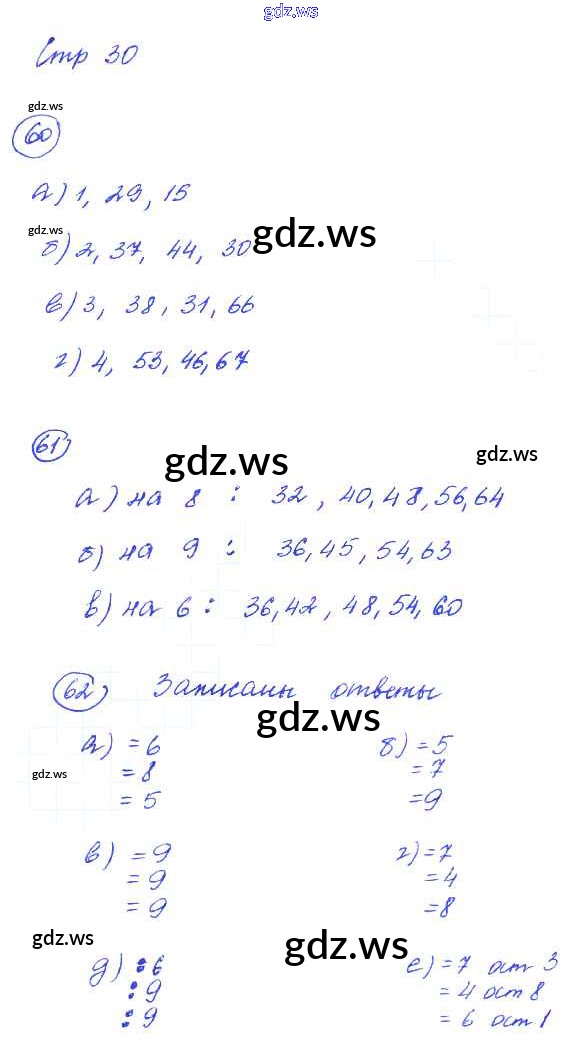 gdz.ws
Стр 30
gdz.ws
60
а) 1, 29, 15
gdz.ws
б) 2, 37, 44, 30
gdz.ws
в) 3, 38, 31, 66
г) 4, 53, 46, 67
61)
gdz.ws
gdz.ws
а) на 8 : 32, 40, 48, 56, 64
б) на 9 : 36, 45, 54, 63
в) на 6 : 36, 42, 48, 54, 60
62) Записаны ответы
gdz.ws
а) = 6
= 8
= 5
б) = 5
= 7
= 9
gdz.ws
в) = 9
= 9
= 9
г) = 7
= 4
= 8
gdz.ws
gdz.ws
д) : 6
: 9
: 9
е) = 7 ост 3
= 4 ост 8
= 6 ост 1